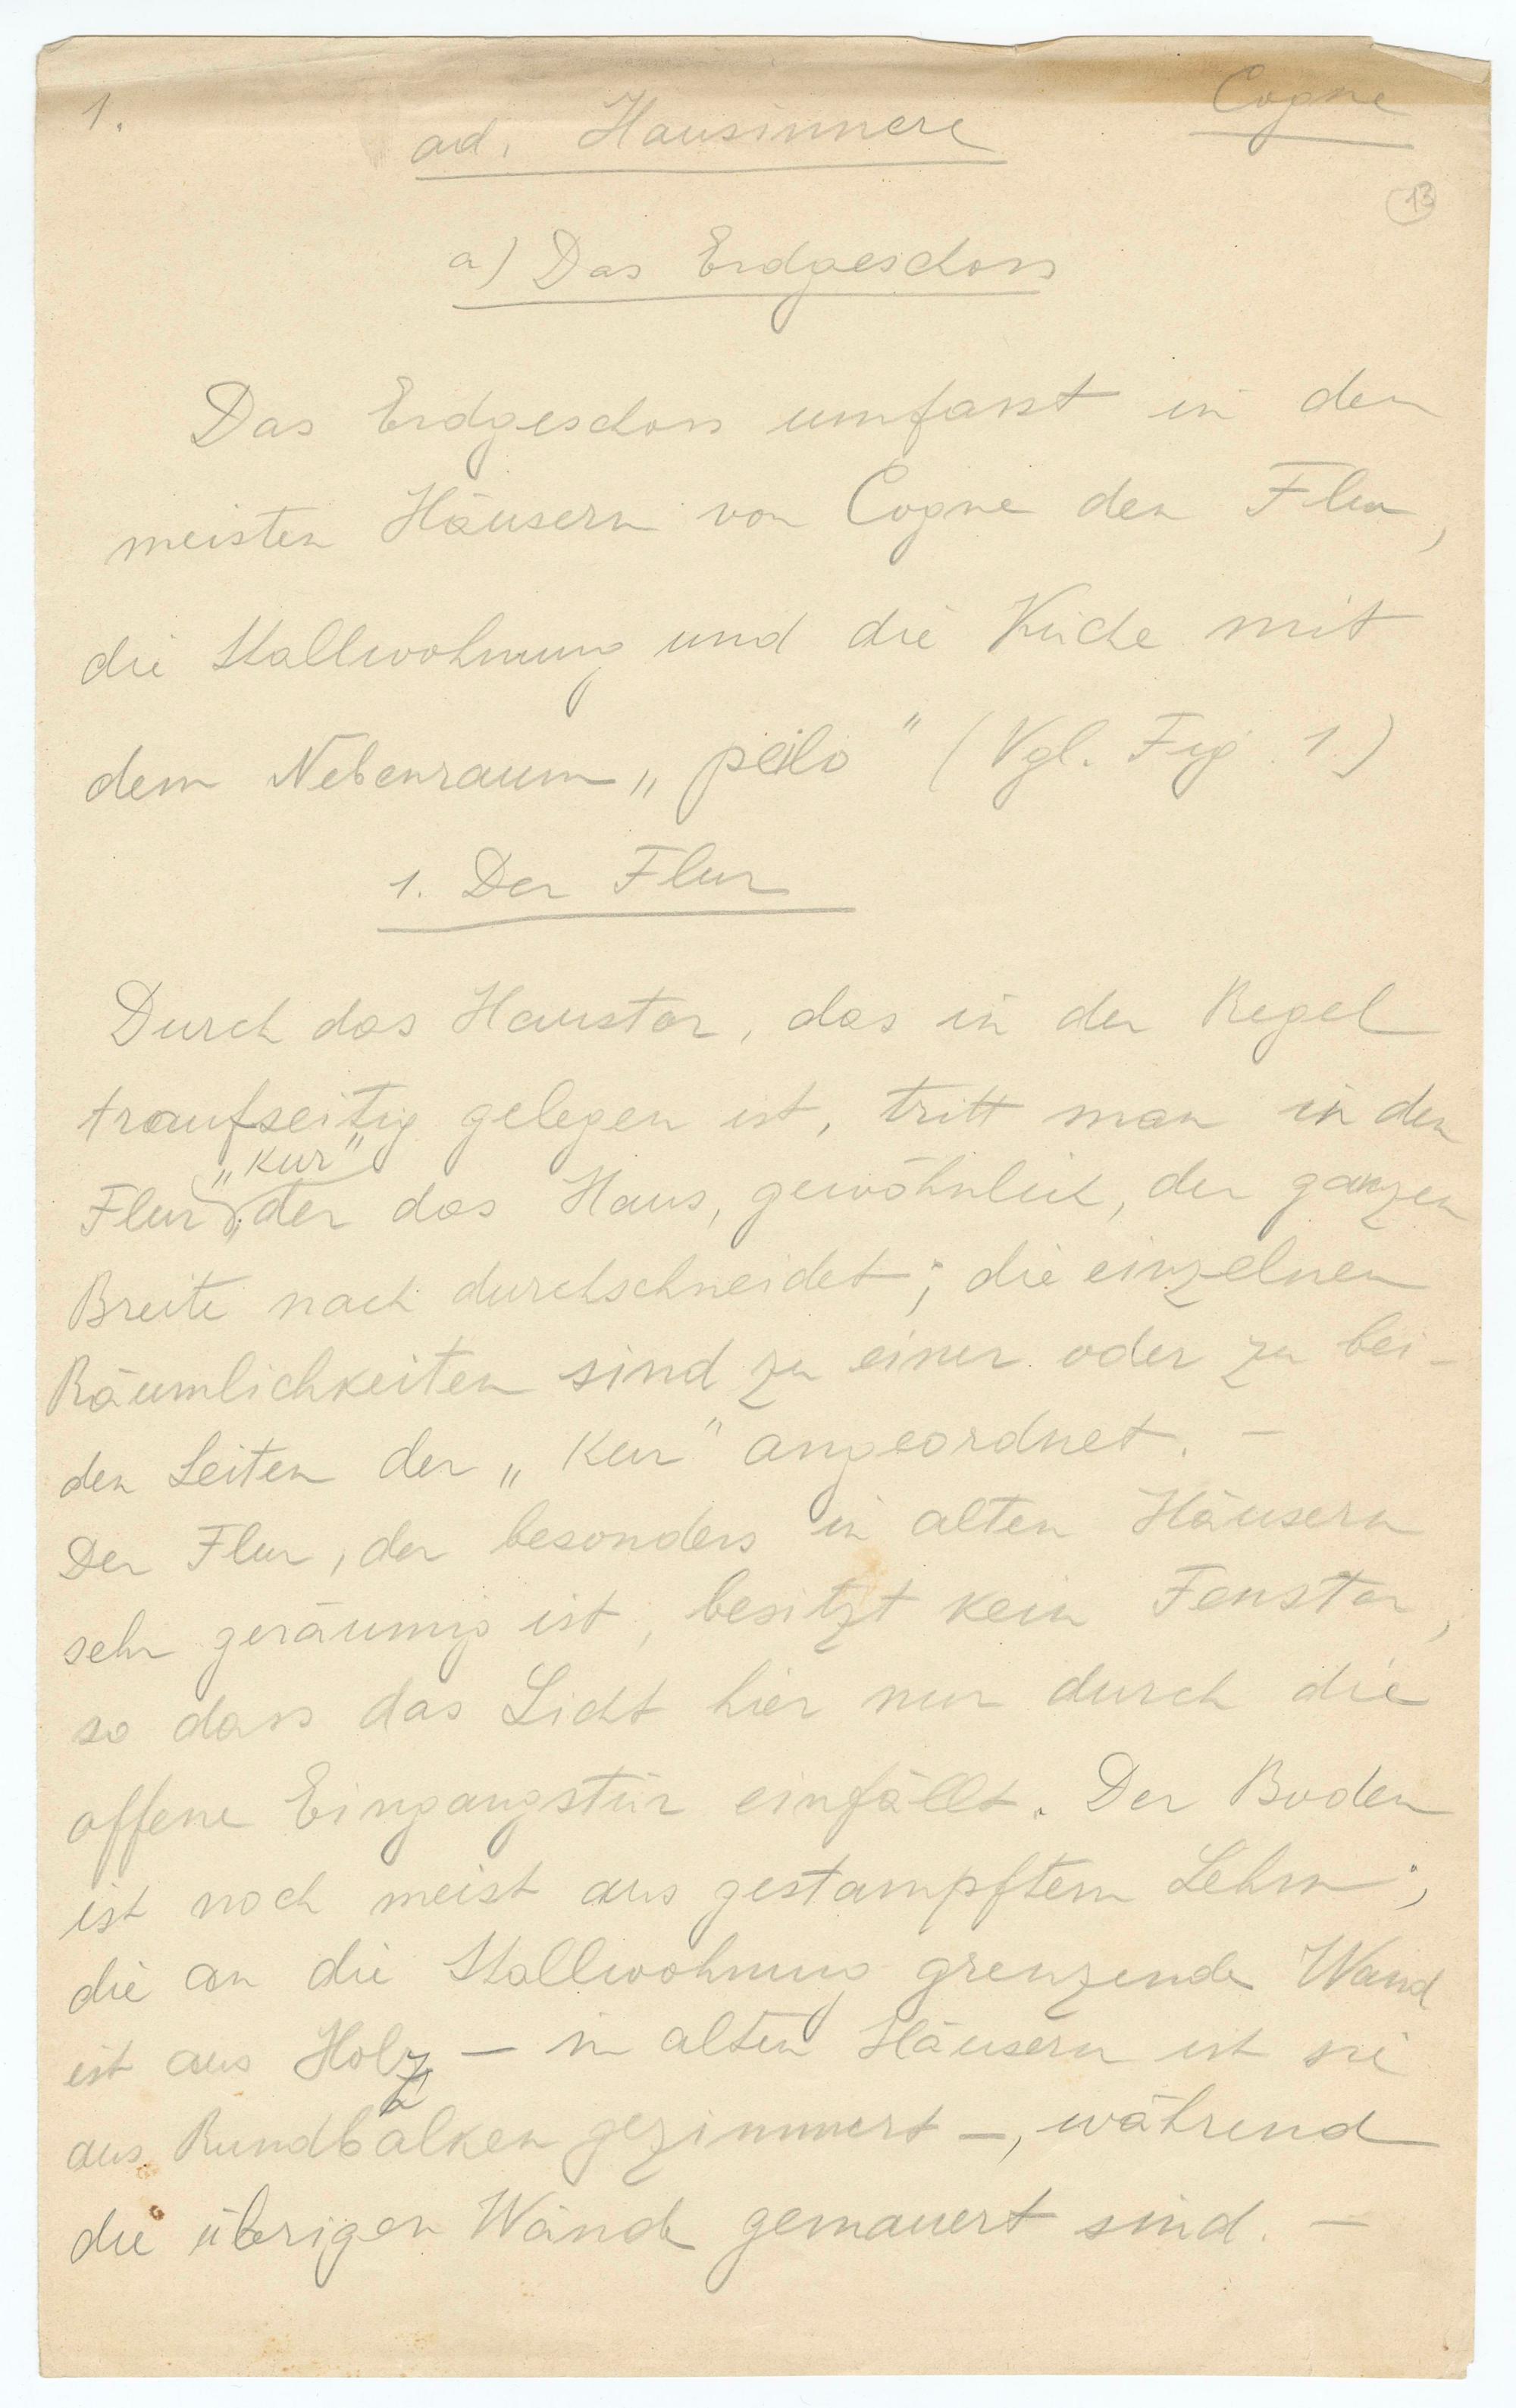 1.
Cogne
ad. Hausinnere
13
a) Das Erdgeschoss
Das Erdgeschoss umfasst in den
meisten Häusern von Cogne den Flur,
die Stallwohnung und die Küche mit
dem Nebenraum „péilo" (Vgl. Fig. 1)
1. Der Flur
Durch das Haustor, das in der Regel
traufseitig gelegen ist, tritt man in den
„kur"
Flur, der das Haus, gewöhnlich, der ganzen
Breite nach durchschneidet; die einzelnen
Räumlichkeiten sind zu einer oder zu bei-
den Seiten der „kur" angeordnet. –
Der Flur, der besonders in alten Häusern
sehr geräumig ist, besitzt kein Fenster,
so dass das Licht hier nur durch die
offene Eingangstür einfällt. Der Boden
ist noch meist aus gestampftem Lehm;
die an die Stallwohnung grenzende Wand
ist aus Holz – in alten Häusern ist sie
aus Rundbalken gezimmert –, während
die übrigen Wände gemauert sind. –